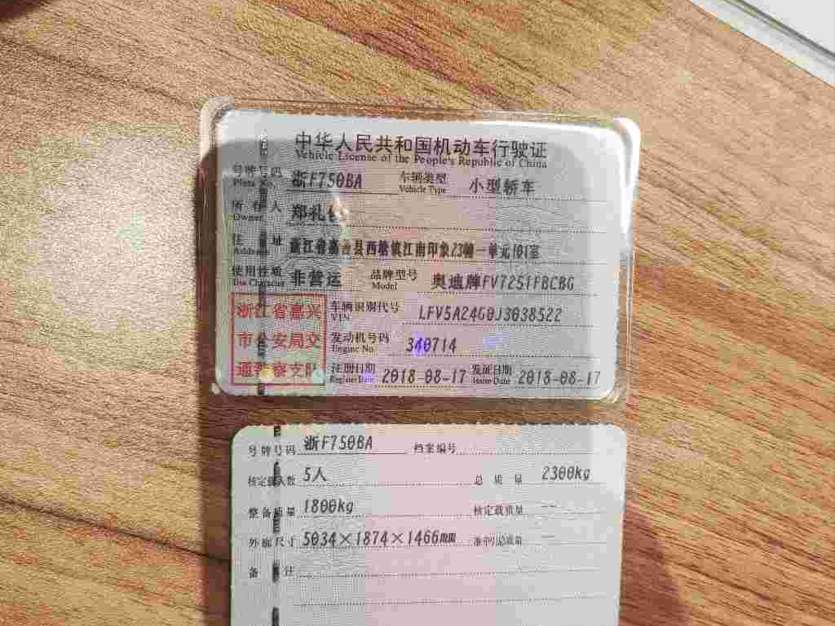 中华人民共和国机动车行驶证
Vehicle License of the People's Republic of China
号牌号码 浙F750BA 车辆类型 小型轿车
Plate No. Vehicle Type
所有人 郑礼
Owner
住址 浙江省嘉善县西塘镇江南印象23幢一单元101室
Address
使用性质 非营运 品牌型号 奥迪牌FV7251FBCBG
Use Character Model
浙江省嘉兴
市公安局交
通警察支队
车辆识别代号 LFV5A24G0J3038522
VIN
发动机号码 340714
Engine No.
注册日期 2018-08-17 发证日期 2018-08-17
Register Date Issue Date
号牌号码 浙F750BA 档案编号
核定载人数 5人 总质量 2300kg
整备质量 1800kg 核定载质量 --
外廓尺寸 5034×1874×1466mm 准牵引总质量 --
备注